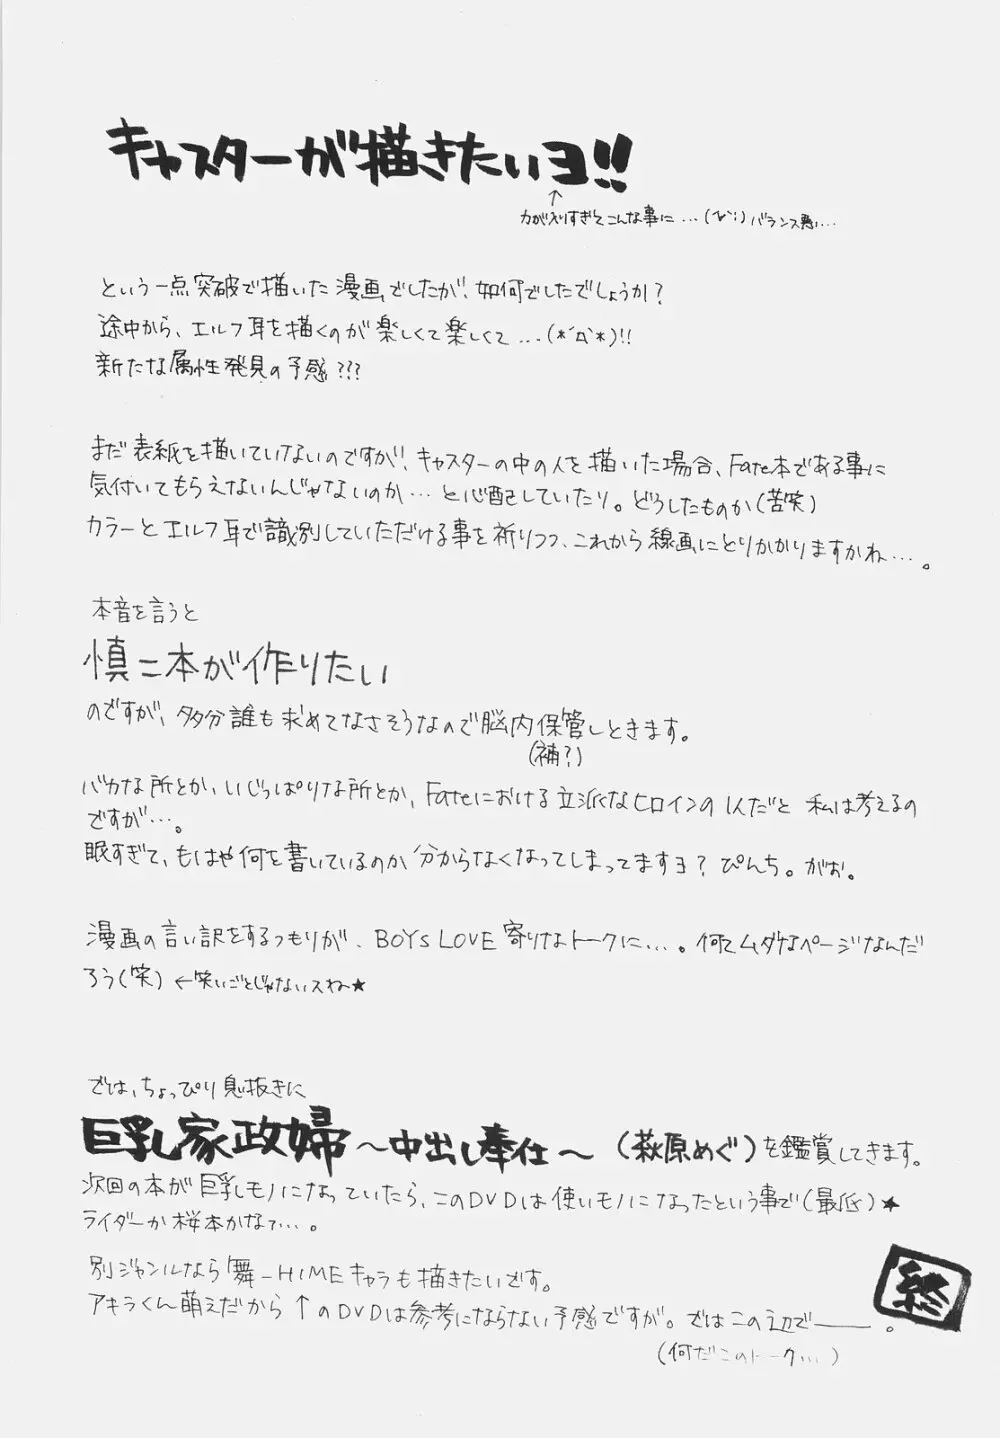 キャスターが描きたいヨ!!
↑
力が入りすぎてこんな事に…(^^;)バランス悪い…
という一点突破で描いた漫画でしたが、如何でしたでしょうか?
途中から、エルフ耳を描くのが楽しくて楽しくて…(*´Д`*)!!
新たな属性発見の予感???
まだ表紙を描いていないのですが、キャスターの中の人を描いた場合、Fate本である事に
気付いてもらえないんじゃないのか…と心配していたり。どうしたものか(苦笑)
カラーとエルフ耳で識別していただける事を祈りつつ、これから線画にとりかかりますかね…。
本音を言うと
慎二本が作りたい
のですが、多分誰も求めてなさそうなので脳内保管しときます。
(補?)
バカな所とか、いじっぱりな所とか、Fateにおける立派なヒロインの1人だと私は考えるの
ですが…。
眠すぎて、もはや何を書いているのか分からなくなってしまってますヨ?ぴんち。がお。
漫画の言い訳をするつもりが、BOYs LOVE寄りなトークに…。何てムダなページなんだ
ろう(笑)←笑いごとじゃないスね★
では、ちょっぴり息抜きに
巨乳家政婦~中出し奉仕~(萩原めぐ)を鑑賞してきます。
次回の本が巨乳モノになっていたら、このDVDは使いモノになったという事で(最低)★
ライダーか桜本かなぁ…。
別ジャンルなら舞-HIMEキャラも描きたいです。
アキラくん萌えだから↑のDVDは参考にならない予感ですが。ではこの辺で――。
(何だこのトーク…)
終